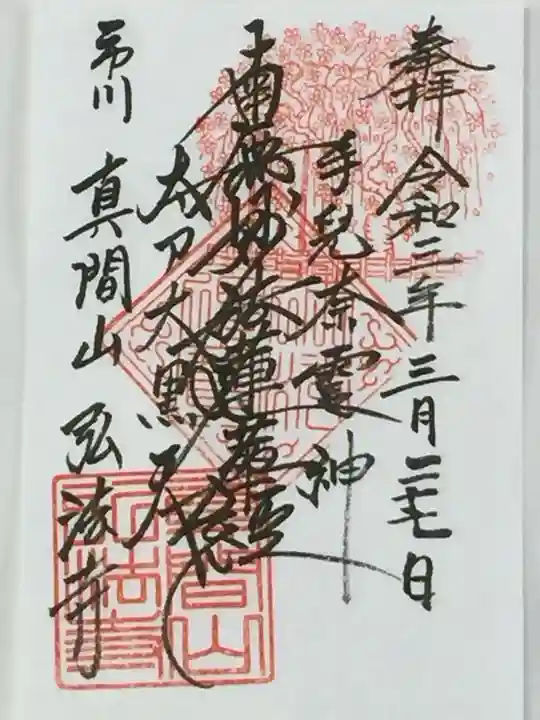 奉拝 令和二年三月二七日
手兒奈霊神
南無妙法蓮華経
太刀大黒天
市川 真間山 弘法寺